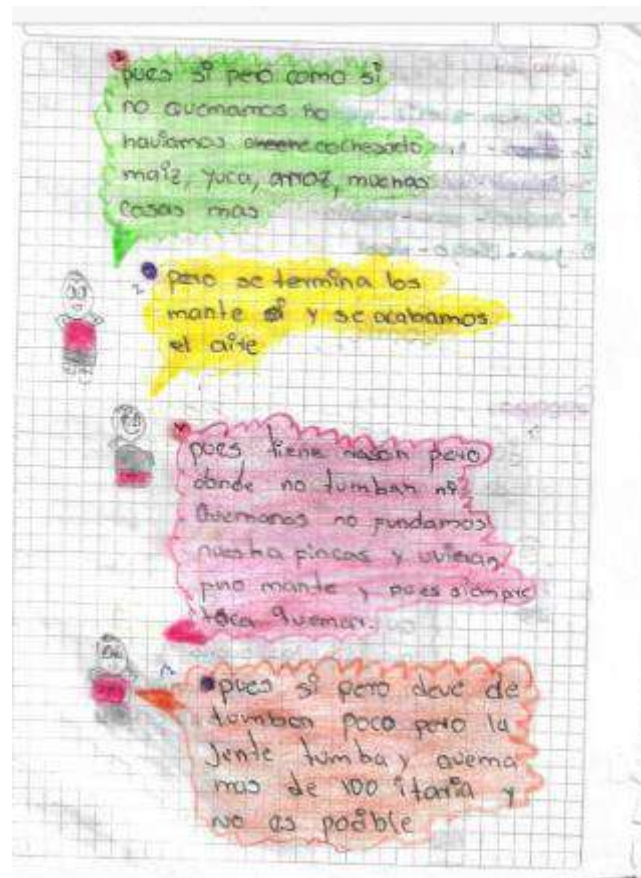 pues si pero como si
no quemamos no
haviamos cochesado
maiz, yuca, arroz, muchas
cosas mas
pero se termina los
mante si y se acabamos
el aire
pues tiene rason pero
donde no tumban ni
Quemanos no fundamos
nuestra fincas y uvieran
puo mante y pues siempre
toca quemar.
pues si pero deve de
tumban poco pero la
jente tumba y quema
mas de 100 itaria y
no es posible